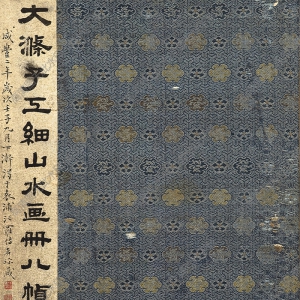 大滌子工細山水画冊八幀
咸豐二年歲次壬子九月